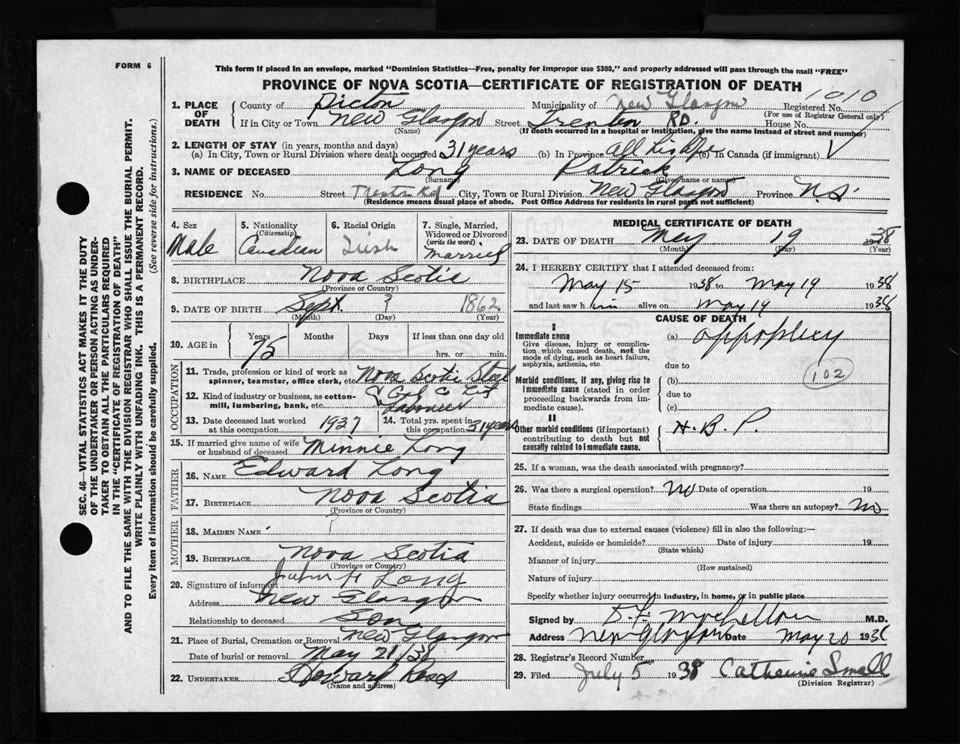 FORM 6
This form if placed in an envelope, marked "Dominion Statistics—Free, penalty for improper use $300," and properly addressed will pass through the mail "FREE"
PROVINCE OF NOVA SCOTIA—CERTIFICATE OF REGISTRATION OF DEATH
1010
1. PLACE OF DEATH { County of Pictou Municipality of New Glasgow Registered No.
(For use of Registrar General only)
If in City or Town New Glasgow Street Trenton RD. House No.
(Name) (If death occurred in a hospital or institution, give the name instead of street and number)
2. LENGTH OF STAY (in years, months and days)
(a) In City, Town or Rural Division where death occurred 31 years (b) In Province all his life (c) In Canada (if immigrant)
3. NAME OF DECEASED Long Patrick
(Surname) (Given name or name)
RESIDENCE No. Street Trenton Rd City, Town or Rural Division New Glasgow Province N.S.
(Residence means usual place of abode. Post Office Address for residents in rural parts not sufficient)
4. Sex Male
5. Nationality (Citizenship) Canadian
6. Racial Origin Irish
7. Single, Married, Widowed or Divorced (write the word) Married
8. BIRTHPLACE Nova Scotia
(Province or Country)
9. DATE OF BIRTH Sept. 3 1862
(Month) (Day) (Year)
10. AGE in { Years 75 Months Days If less than one day old
hrs. or min.
OCCUPATION
11. Trade, profession or kind of work as spinner, teamster, office clerk, etc. Nova Scotia Steel
12. Kind of industry or business, as cotton-mill, lumbering, bank, etc. & Coal Co
Labourer
13. Date deceased last worked at this occupation 1927
14. Total yrs. spent in this occupation 31 years
15. If married give name of wife or husband of deceased Minnie Long
FATHER
16. NAME Edward Long
17. BIRTHPLACE Nova Scotia
(Province or Country)
MOTHER
18. MAIDEN NAME
19. BIRTHPLACE Nova Scotia
(Province or Country)
20. Signature of informant John H Long
Address New Glasgow
Relationship to deceased Son
21. Place of Burial, Cremation or Removal New Glasgow
Date of burial or removal May 21/38
22. UNDERTAKER Howard Ross
(Name and address)
MEDICAL CERTIFICATE OF DEATH
23. DATE OF DEATH May 19 1938
(Month) (Day) (Year)
24. I HEREBY CERTIFY that I attended deceased from
May 15 1938 to May 19 1938
and last saw him alive on May 19 1938
CAUSE OF DEATH
I
Immediate cause
Give disease, injury or complication which caused death, not the mode of dying, such as heart failure, asphyxia, asthenia, etc.
(a) appoplexy
due to
Morbid conditions, if any, giving rise to immediate cause (stated in order proceeding backwards from immediate cause).
(b)
102
due to
(c)
II
Other morbid conditions (if important) contributing to death but not causally related to immediate cause.
H.B.P.
25. If a woman, was the death associated with pregnancy?
26. Was there a surgical operation? No Date of operation 19
State findings Was there an autopsy? No
27. If death was due to external causes (violence) fill in also the following:—
Accident, suicide or homicide? Date of injury 19
(State which)
Manner of injury
(How sustained)
Nature of injury
Specify whether injury occurred in industry, in home, or in public place
Signed by M.D.
Address New Glasgow Date May 20 1938
28. Registrar's Record Number
29. Filed July 5 1938 Catherine Small
(Division Registrar)
SEC. 46—VITAL STATISTICS ACT MAKES IT THE DUTY
OF THE UNDERTAKER OR PERSON ACTING AS UNDER-
TAKER TO OBTAIN ALL THE PARTICULARS REQUIRED
IN THE "CERTIFICATE OF REGISTRATION OF DEATH"
AND TO FILE THE SAME WITH THE DIVISION REGISTRAR WHO SHALL ISSUE THE BURIAL PERMIT.
WRITE PLAINLY WITH UNFADING INK. THIS IS A PERMANENT RECORD.
Every item of information should be carefully supplied. (See reverse side for instructions.)